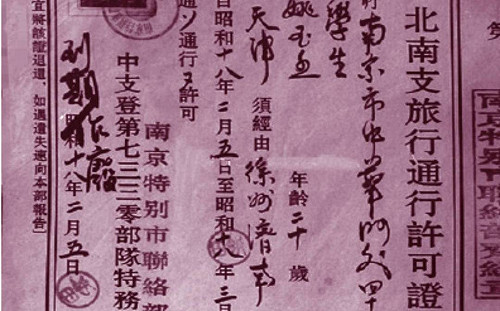 北南支旅行通行許可證
南京市中華門外四
學生
姚玉
年齡二十歲
天津
須經由徐州濟南
自昭和十八年二月五日至昭和十八年三月
通ノ通行ヲ許可
南京特別市聯絡部
中支登第七三三零部隊特務
到期作廢
昭和十八年二月五日
宜將該證退還，如遇遺失速向本部報告﹞
南京特別市聯絡部